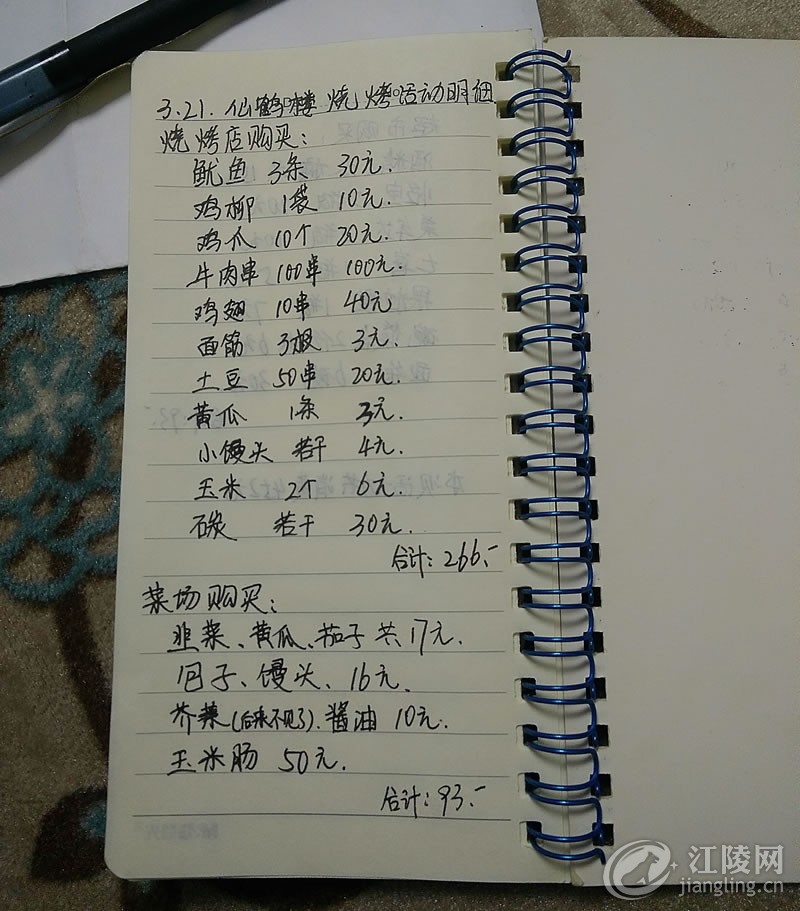 3.21. 仙鹤楼 烧烤活动明细
烧烤店购买：
鱿鱼 3条 30元.
鸡柳 1袋 10元.
鸡爪 10个 20元.
牛肉串 100串 100元.
鸡翅 10串 40元
面筋 3根 3元.
土豆 50串 20元.
黄瓜 1条 3元.
小馒头 若干 4元.
玉米 2个 6元.
石炭 若干 30元.
合计：266.-
菜场购买：
韭菜、黄瓜、茄子 共17元.
包子、馒头、16元.
芥菜(后来不见了). 酱油 10元.
玉米肠 50元.
合计：93.-
江陵网
jiangling.cn